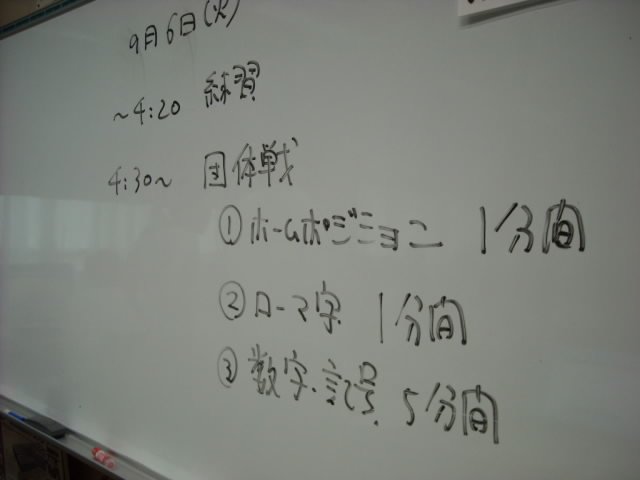 9月6日(火)
~4:20 練習
4:30~ 団体戦
①ホームポジション 1分間
②ローマ字 1分間
③数字・記号 5分間